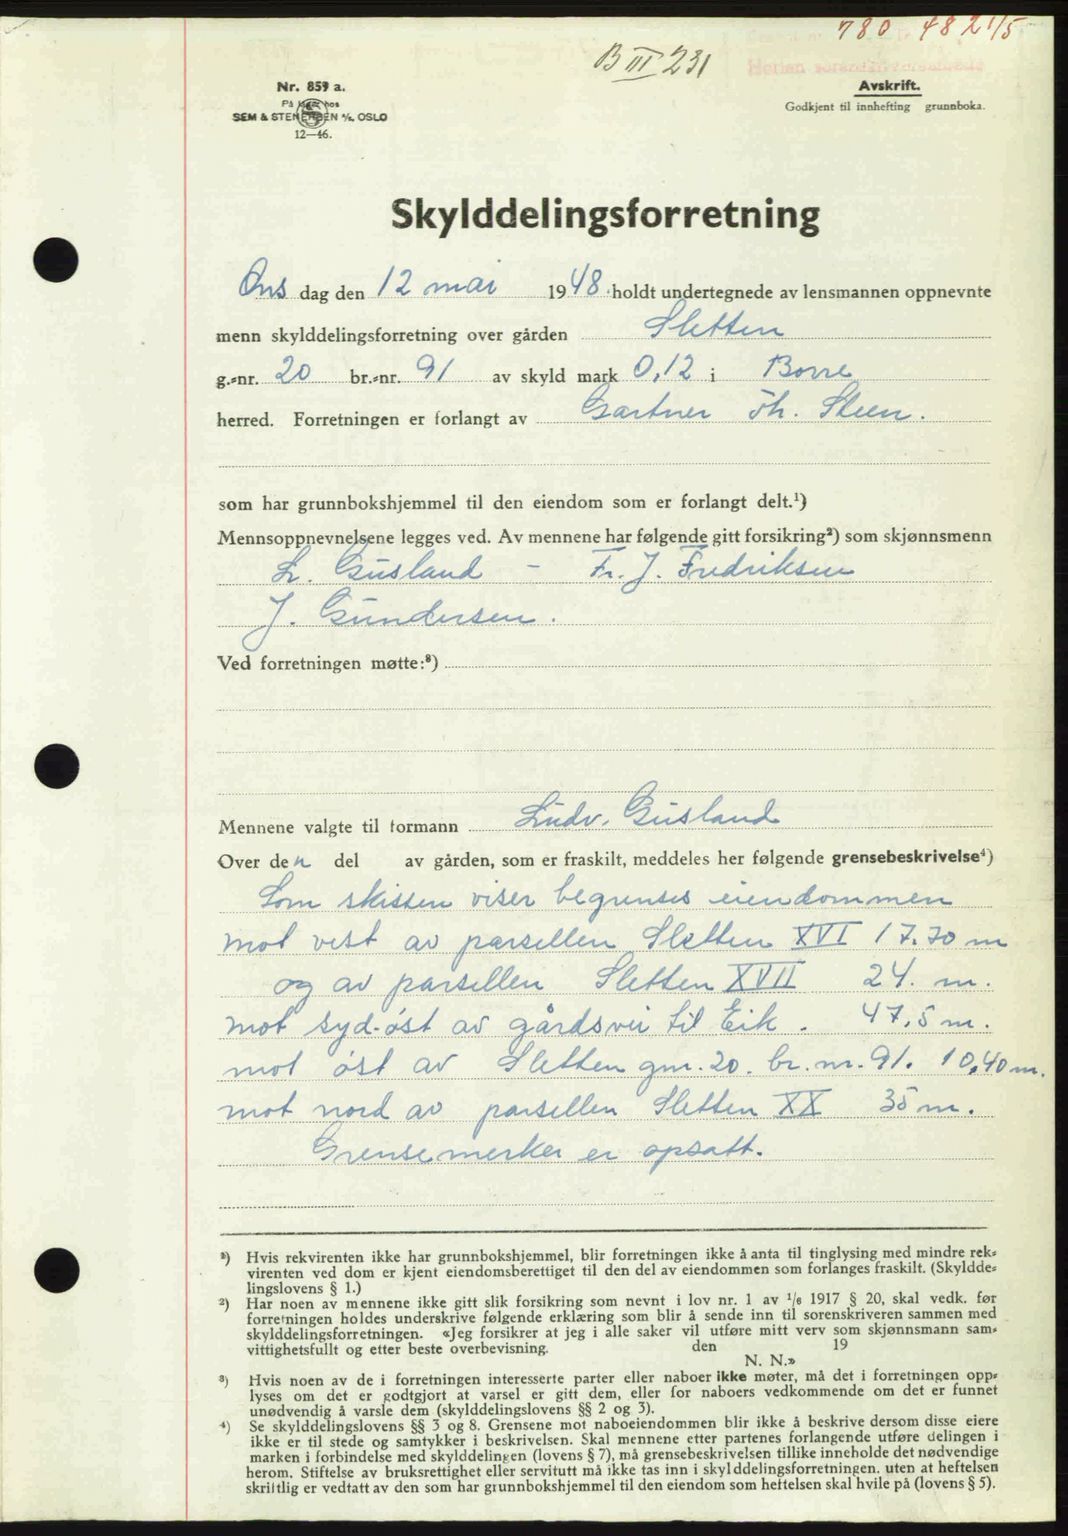 780 482 1/5
B III 231
Nr. 859 a.
På lager hos
SEM & STENERSEN A/S, OSLO
12—46.
Avskrift.
Godkjent til innhefting grunnboka.
Skylddelingsforretning
Ons dag den 12 mai 1948 holdt undertegnede av lensmannen oppnevnte
menn skylddelingsforretning over gården Sletten
g.-nr. 20 br.-nr. 91 av skyld mark 0,12 i Borre
herred. Forretningen er forlangt av Gartner Th. Steen.
som har grunnbokshjemmel til den eiendom som er forlangt delt.¹)
Mennsoppnevnelsene legges ved. Av mennene har følgende gitt forsikring²) som skjønnsmenn
L. Gusland – Fr. J. Fredriksen
J. Gundersen.
Ved forretningen møtte:³)
Mennene valgte til formann Ludv. Gusland
Over den del av gården, som er fraskilt, meddeles her følgende grensebeskrivelse⁴)
Som skissen viser begrenses eiendommen
mot vest av parsellen Sletten XVI 17.70 m
og av parsellen Sletten XVII 24. m.
mot syd-øst av gårdsvei til Eik. 47,5 m.
mot øst av Sletten gnr. 20. br. nr. 91. 10,40 m.
mot nord av parsellen Sletten XX 35 m.
Grensemerker er opsatt.
¹) Hvis rekvirenten ikke har grunnbokshjemmel, blir forretningen ikke å anta til tinglysing med mindre rek-
virenten ved dom er kjent eiendomsberettiget til den del av eiendommen som forlanges fraskilt. (Skyldde-
lingslovens § 1.)
²) Har noen av mennene ikke gitt slik forsikring som nevnt i lov nr. 1 av 1/6 1917 § 20, skal vedk. før
forretningen holdes underskrive følgende erklæring som blir å sende inn til sorenskriveren sammen med
skylddelingsforretningen. «Jeg forsikrer at jeg i alle saker vil utføre mitt verv som skjønnsmann sam-
vittighetsfullt og etter beste overbevisning. den 19
N. N.»
³) Hvis noen av de i forretningen interesserte parter eller naboer ikke møter, må det i forretningen opp-
lyses om det er godtgjort at varsel er gitt dem, eller for naboers vedkommende om det er funnet
unødvendig å varsle dem (skylddelingslovens §§ 2 og 3).
⁴) Se skylddelingslovens §§ 3 og 8. Grensene mot naboeiendommen blir ikke å beskrive dersom disse eiere
ikke er til stede og samtykker i beskrivelsen. Skal mennene etter partenes forlangende utføre delingen i
marken i forbindelse med skylddelingen (lovens § 7), må grensebeskrivelsen tillike inneholde det nødvendige
herom. Stiftelse av bruksrettighet eller servitutt må ikke tas inn i skylddelingsforretningen, uten at heftelsen
skriftlig er vedtatt av den som har grunnbokshjemmel til den eiendom som heftelsen skal hvile på (lovens § 5).